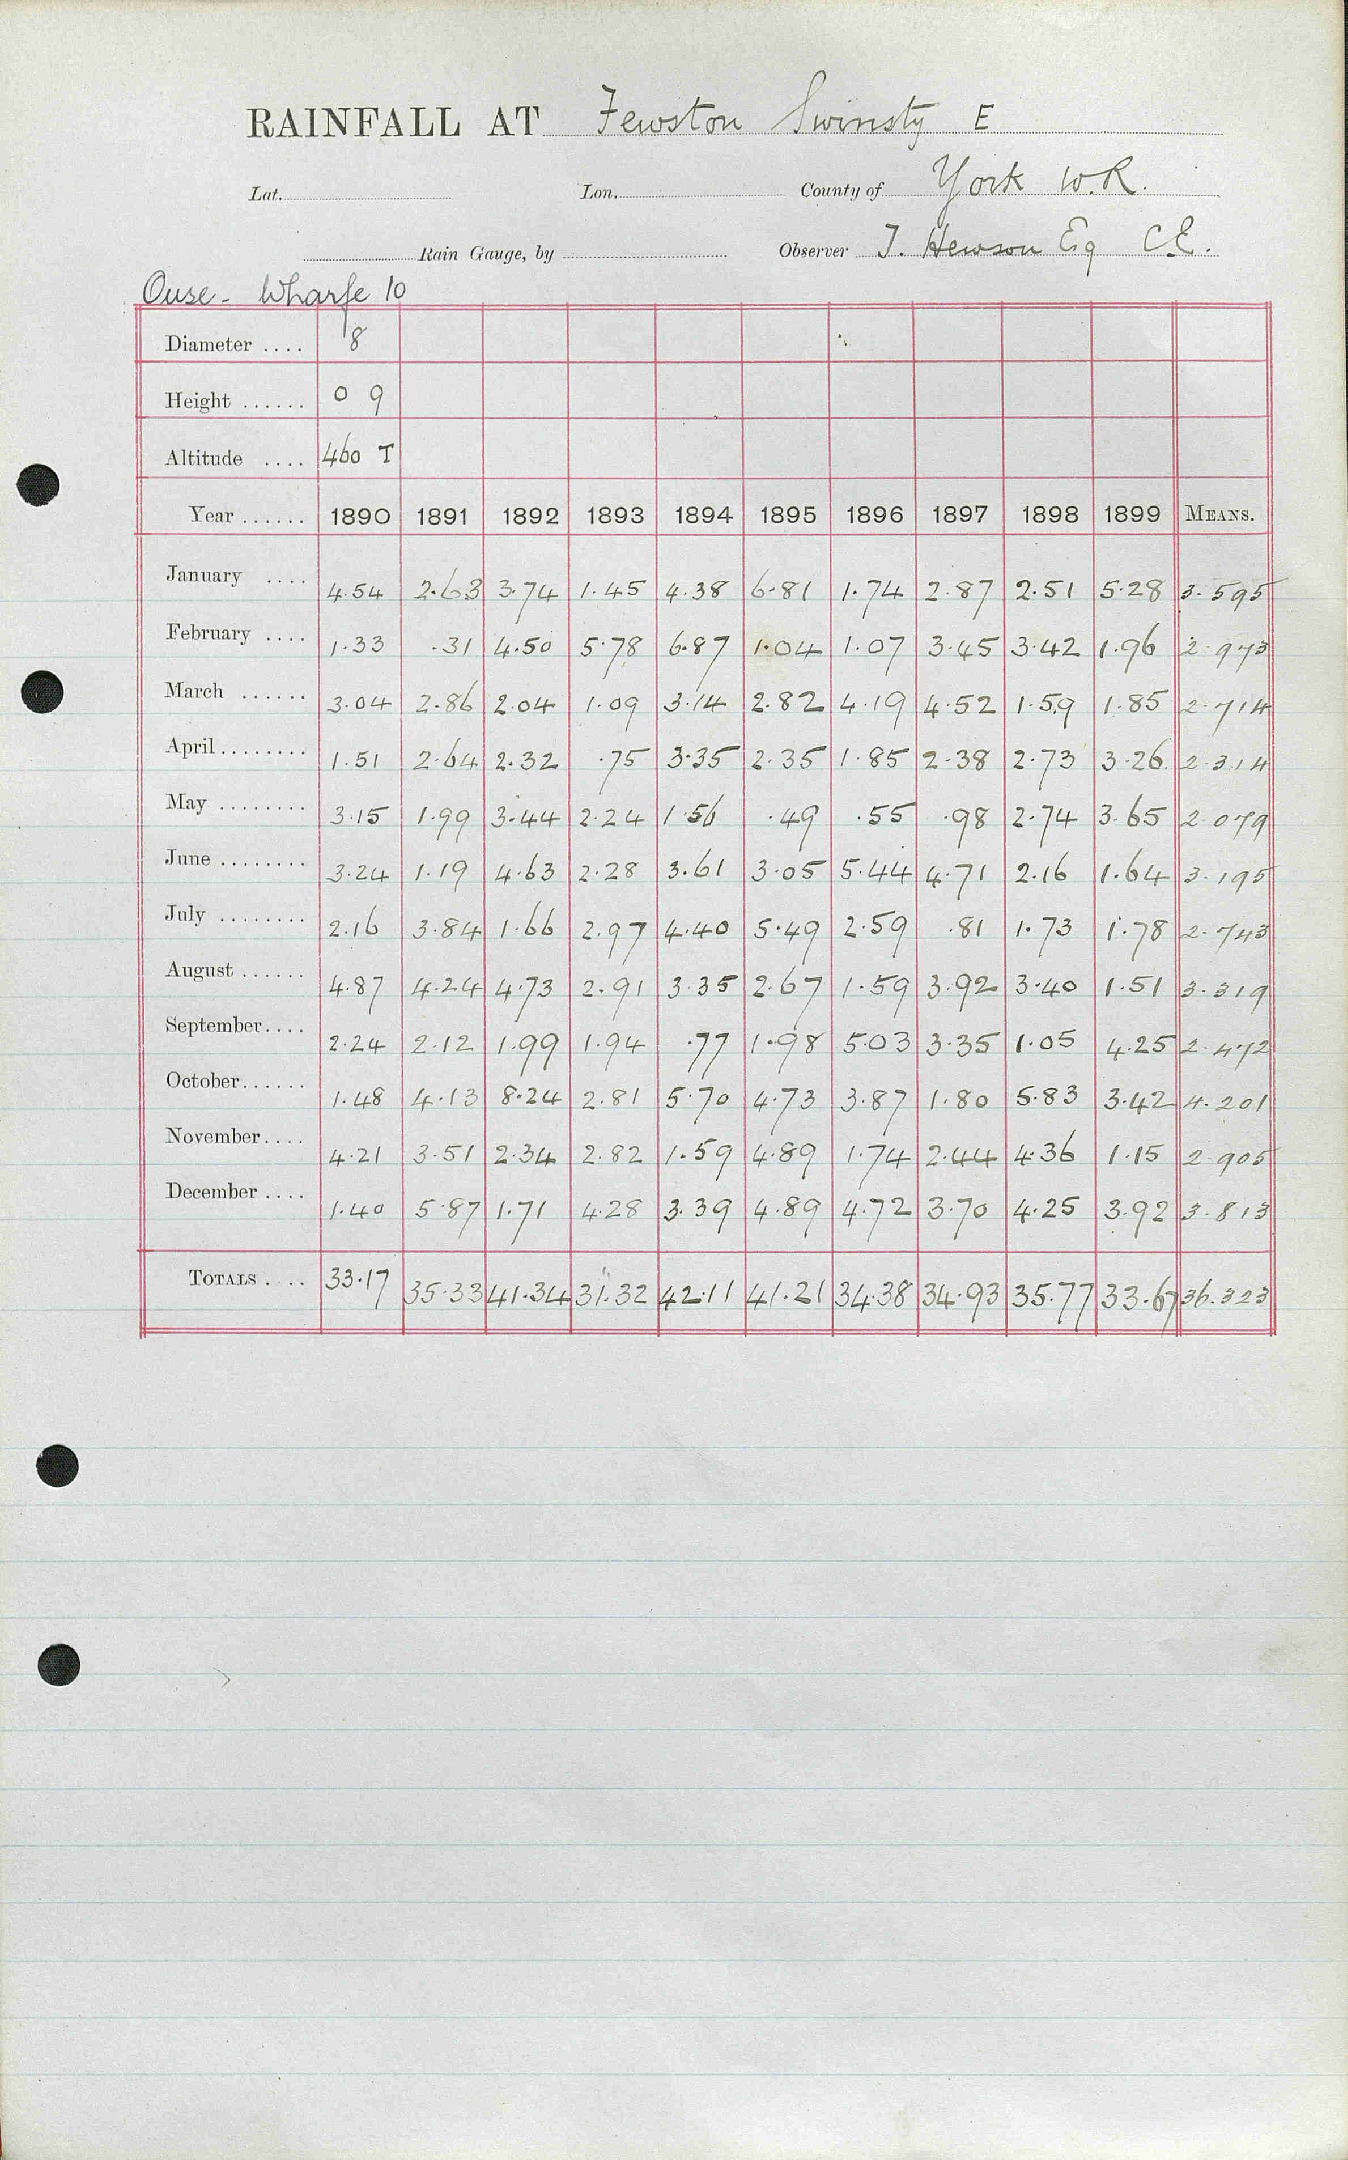 RAINFALL AT Fewston Swinsty E
Lat. Lon. County of York W.R.
Rain Gauge, by Observer T. Hewson Esq CE.
Ouse - Wharfe 10
Diameter .... 8
Height ...... 0 9
Altitude .... 460 T
Year ...... 1890 1891 1892 1893 1894 1895 1896 1897 1898 1899 MEANS.
January .... 4.54 2.63 3.74 1.45 4.38 6.81 1.74 2.87 2.51 5.28 3.595
February .... 1.33 .31 4.50 5.78 6.87 1.04 1.07 3.45 3.42 1.96 2.973
March ...... 3.04 2.86 2.04 1.09 3.14 2.82 4.19 4.52 1.59 1.85 2.714
April ........ 1.51 2.64 2.32 .75 3.35 2.35 1.85 2.38 2.73 3.26 2.314
May ........ 3.15 1.99 3.44 2.24 1.56 .49 .55 .98 2.74 3.65 2.079
June ........ 3.24 1.19 4.63 2.28 3.61 3.05 5.44 4.71 2.16 1.64 3.195
July ........ 2.16 3.84 1.66 2.97 4.40 5.49 2.59 .81 1.73 1.78 2.743
August ...... 4.87 4.24 4.73 2.91 3.35 2.67 1.59 3.92 3.40 1.51 3.319
September .... 2.24 2.12 1.99 1.94 .77 1.98 5.03 3.35 1.05 4.25 2.472
October ...... 1.48 4.13 8.24 2.81 5.70 4.73 3.87 1.80 5.83 3.42 4.201
November .... 4.21 3.51 2.34 2.82 1.59 4.89 1.74 2.44 4.36 1.15 2.905
December .... 1.40 5.87 1.71 4.28 3.39 4.89 4.72 3.70 4.25 3.92 3.813
TOTALS .... 33.17 35.33 41.34 31.32 42.11 41.21 34.38 34.93 35.77 33.67 36.323